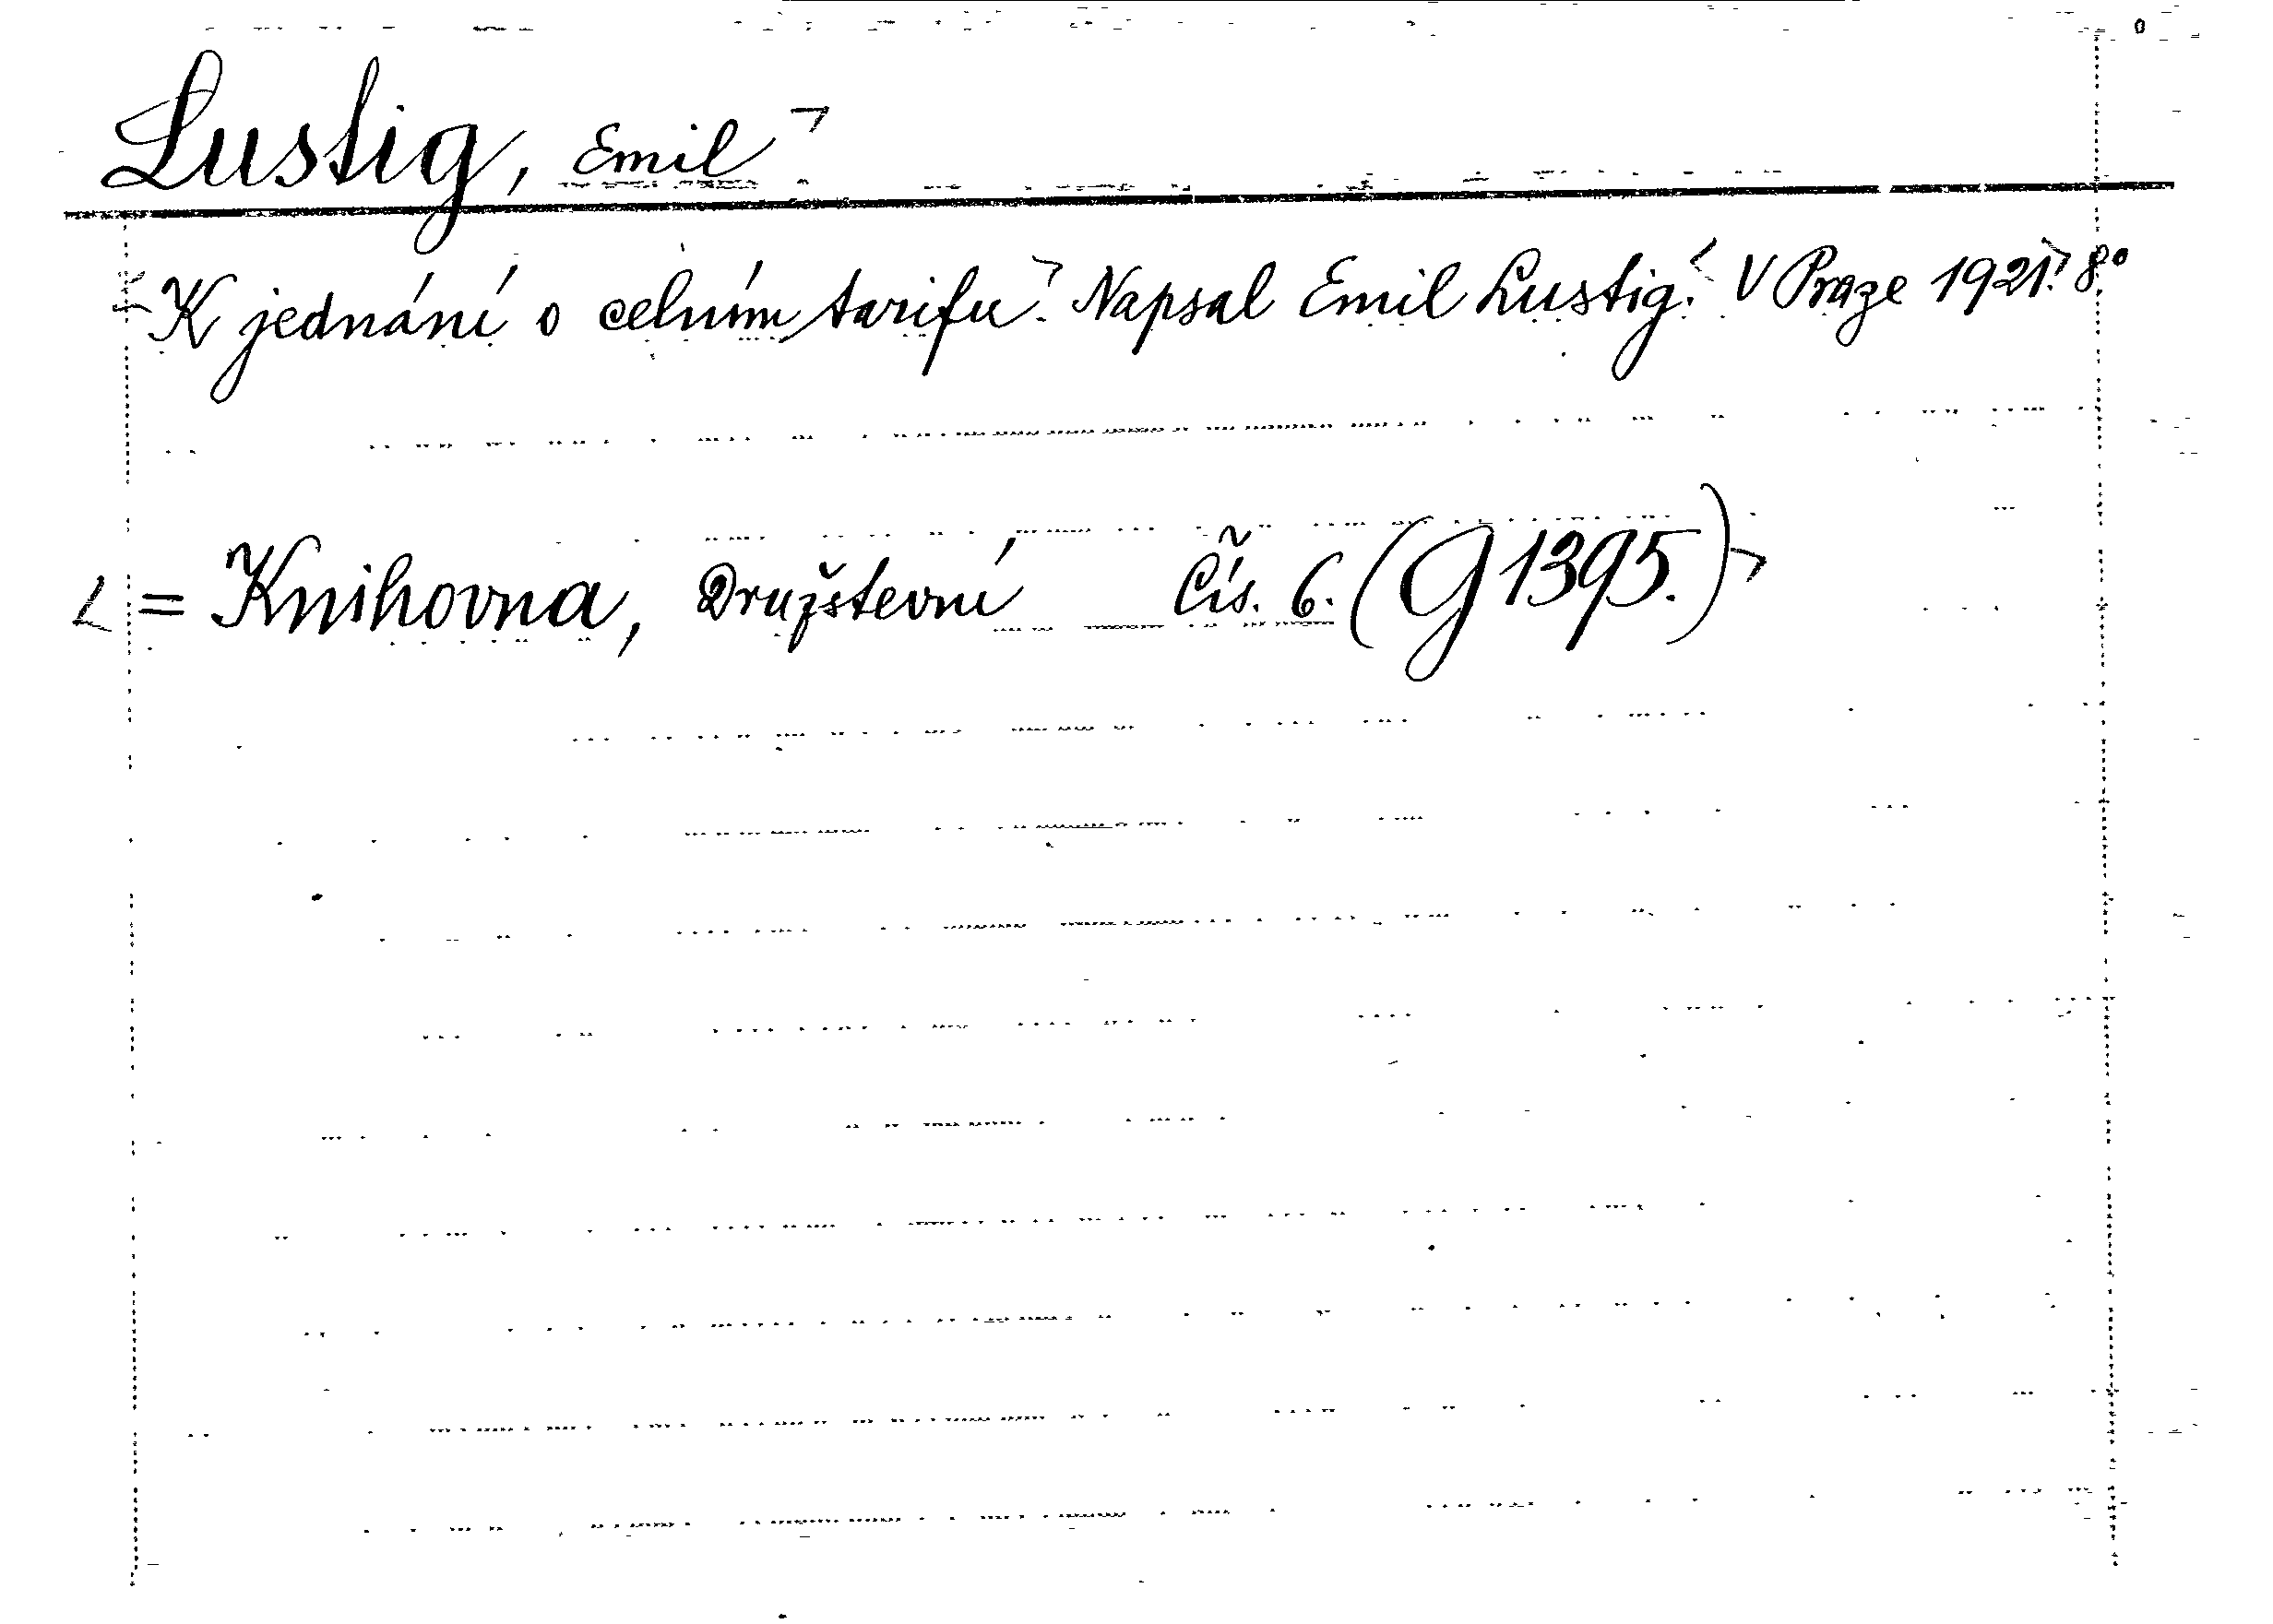 Lustig, Emil
K jednání o celním tarifu. Napsal Emil Lustig. V Praze 1921. 8.°
= Knihovna, Družstevní Čís. 6. (G 1395.)